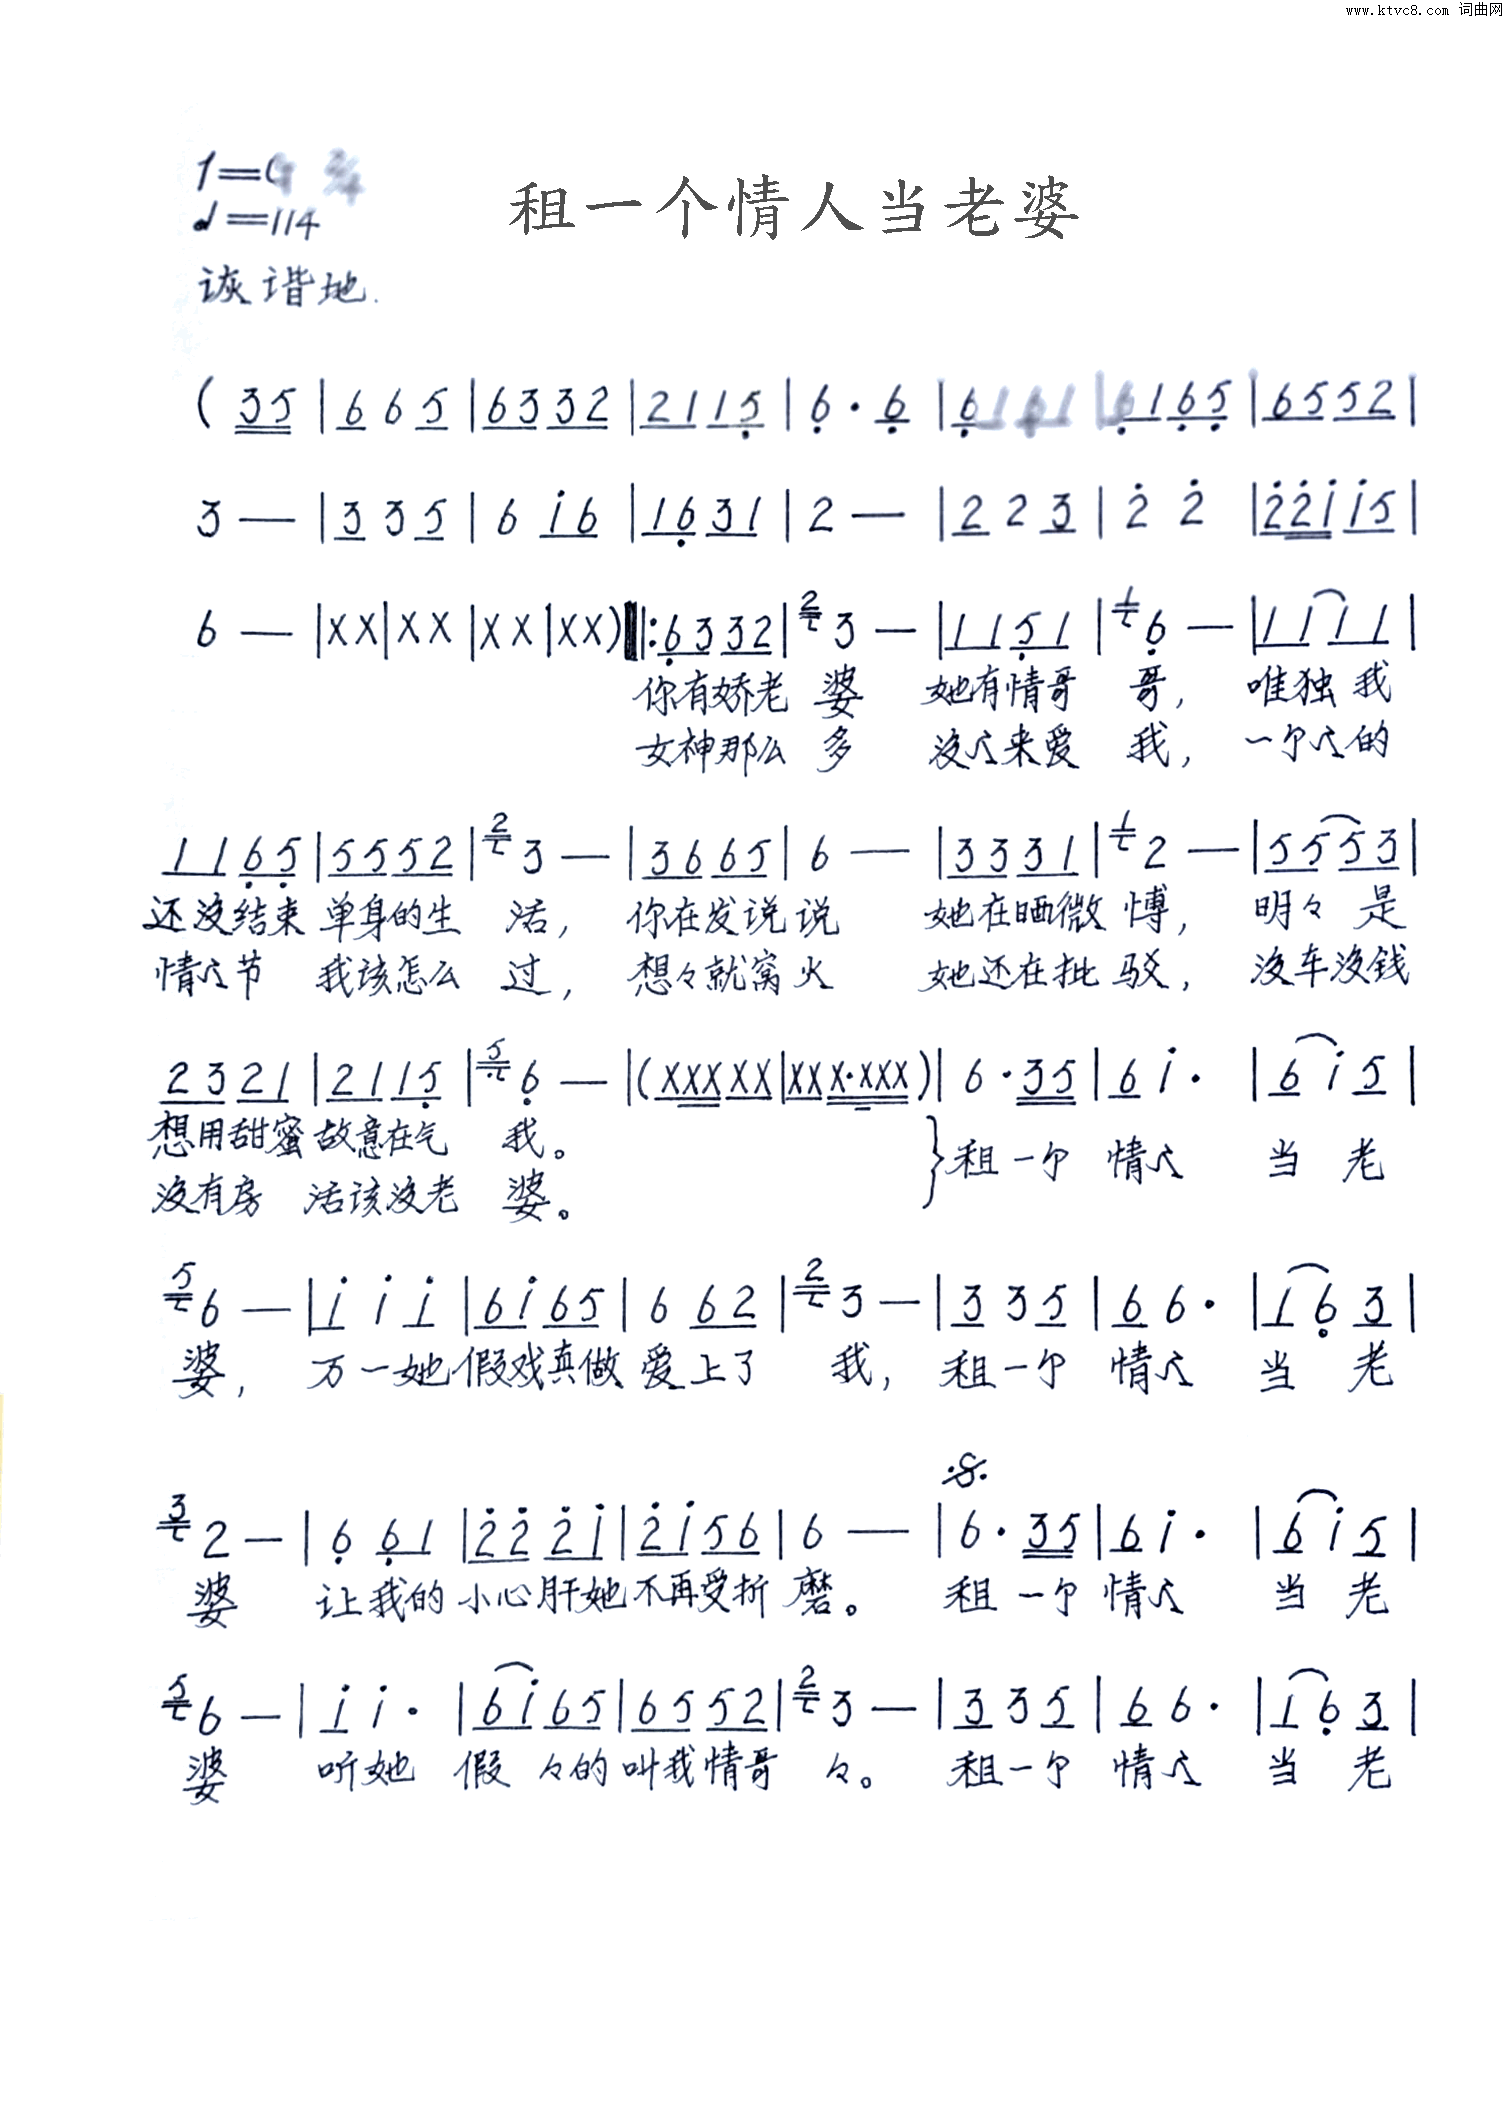 www.ktvc8.com 词曲网
1=
租一个情人当老婆
♩=114
诙谐地.
( 35 | 6 6 5 | 6332 | 2115 | 6 · 6 | 6 1 6 1 | 6165 | 6552 |
3 — | 3 3 5 | 6 i6 | 1631 | 2 — | 2 2 3 | 2 2 | 22i i5 |
6 — | XX | XX | XX | XX ) ‖: 6332 | 2 3 — | 1151 | 1 6 — | 1111 |
你有娇老 婆 她有情哥 哥, 唯独我
女神那么 多 没人来爱 我, 一个人的
1165 | 5552 | 2 3 — | 3665 | 6 — | 3331 | 1 2 — | 5553 |
还没结束 单身的生 活, 你在发说说 她在晒微 博, 明々是
情人节 我该怎么 过, 想々就窝火 她还在批 驳, 没车没钱
2321 | 2115 | 5 6 — | ( XXXXX | XXX·XXX ) | 6 · 35 | 6 i · | 6 i 5 |
想用甜蜜 故意在气 我。 } 租一个 情人 当 老
没有房 活该没老 婆。
5 6 — | i i i | 6i65 | 6 62 | 2 3 — | 3 3 5 | 6 6 · | 1 6 3 |
婆, 万一她 假戏真做 爱上了 我, 租一个 情人 当 老
3 2 — | 6 61 | 22 2i | 2i56 | 6 — | 6 · 35 | 6 i · | 6 i 5 |
婆 让我的 小心肝她 不再受折 磨。 租一个 情人 当 老
5 6 — | i i · | 6i65 | 6552 | 2 3 — | 3 3 5 | 6 6 · | 1 6 3 |
婆 听她 假 々的 叫我情哥 々。 租一个 情人 当 老